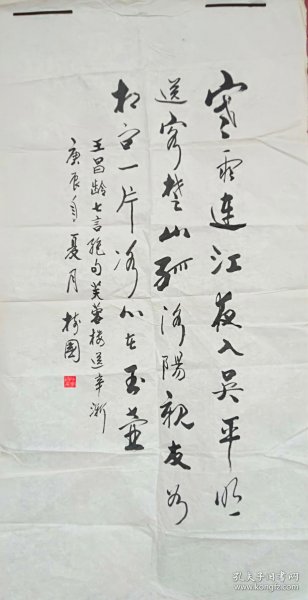 寒雨連江夜入吴平明
送客楚山孤洛陽親友如
相问一片冰心在玉壶
王昌龄七言絶句芙蓉楼送辛渐
庚辰年夏月 樹國
孔夫子旧书网